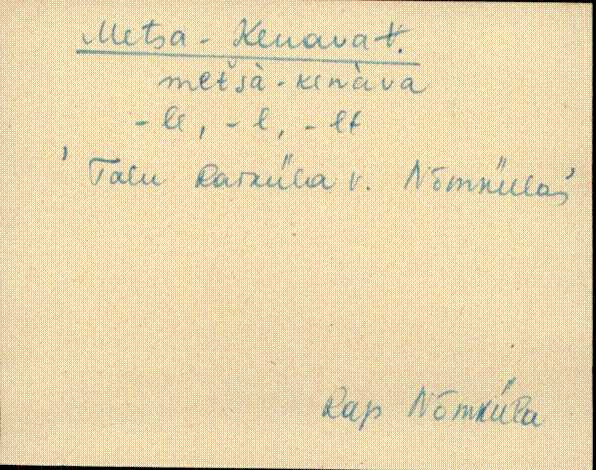 Metsa-Kenava t.
metšà-kenàva
-le, -l, -lt
'Talu Raiküla v. Nõmküllas'
Rap Nõmküla